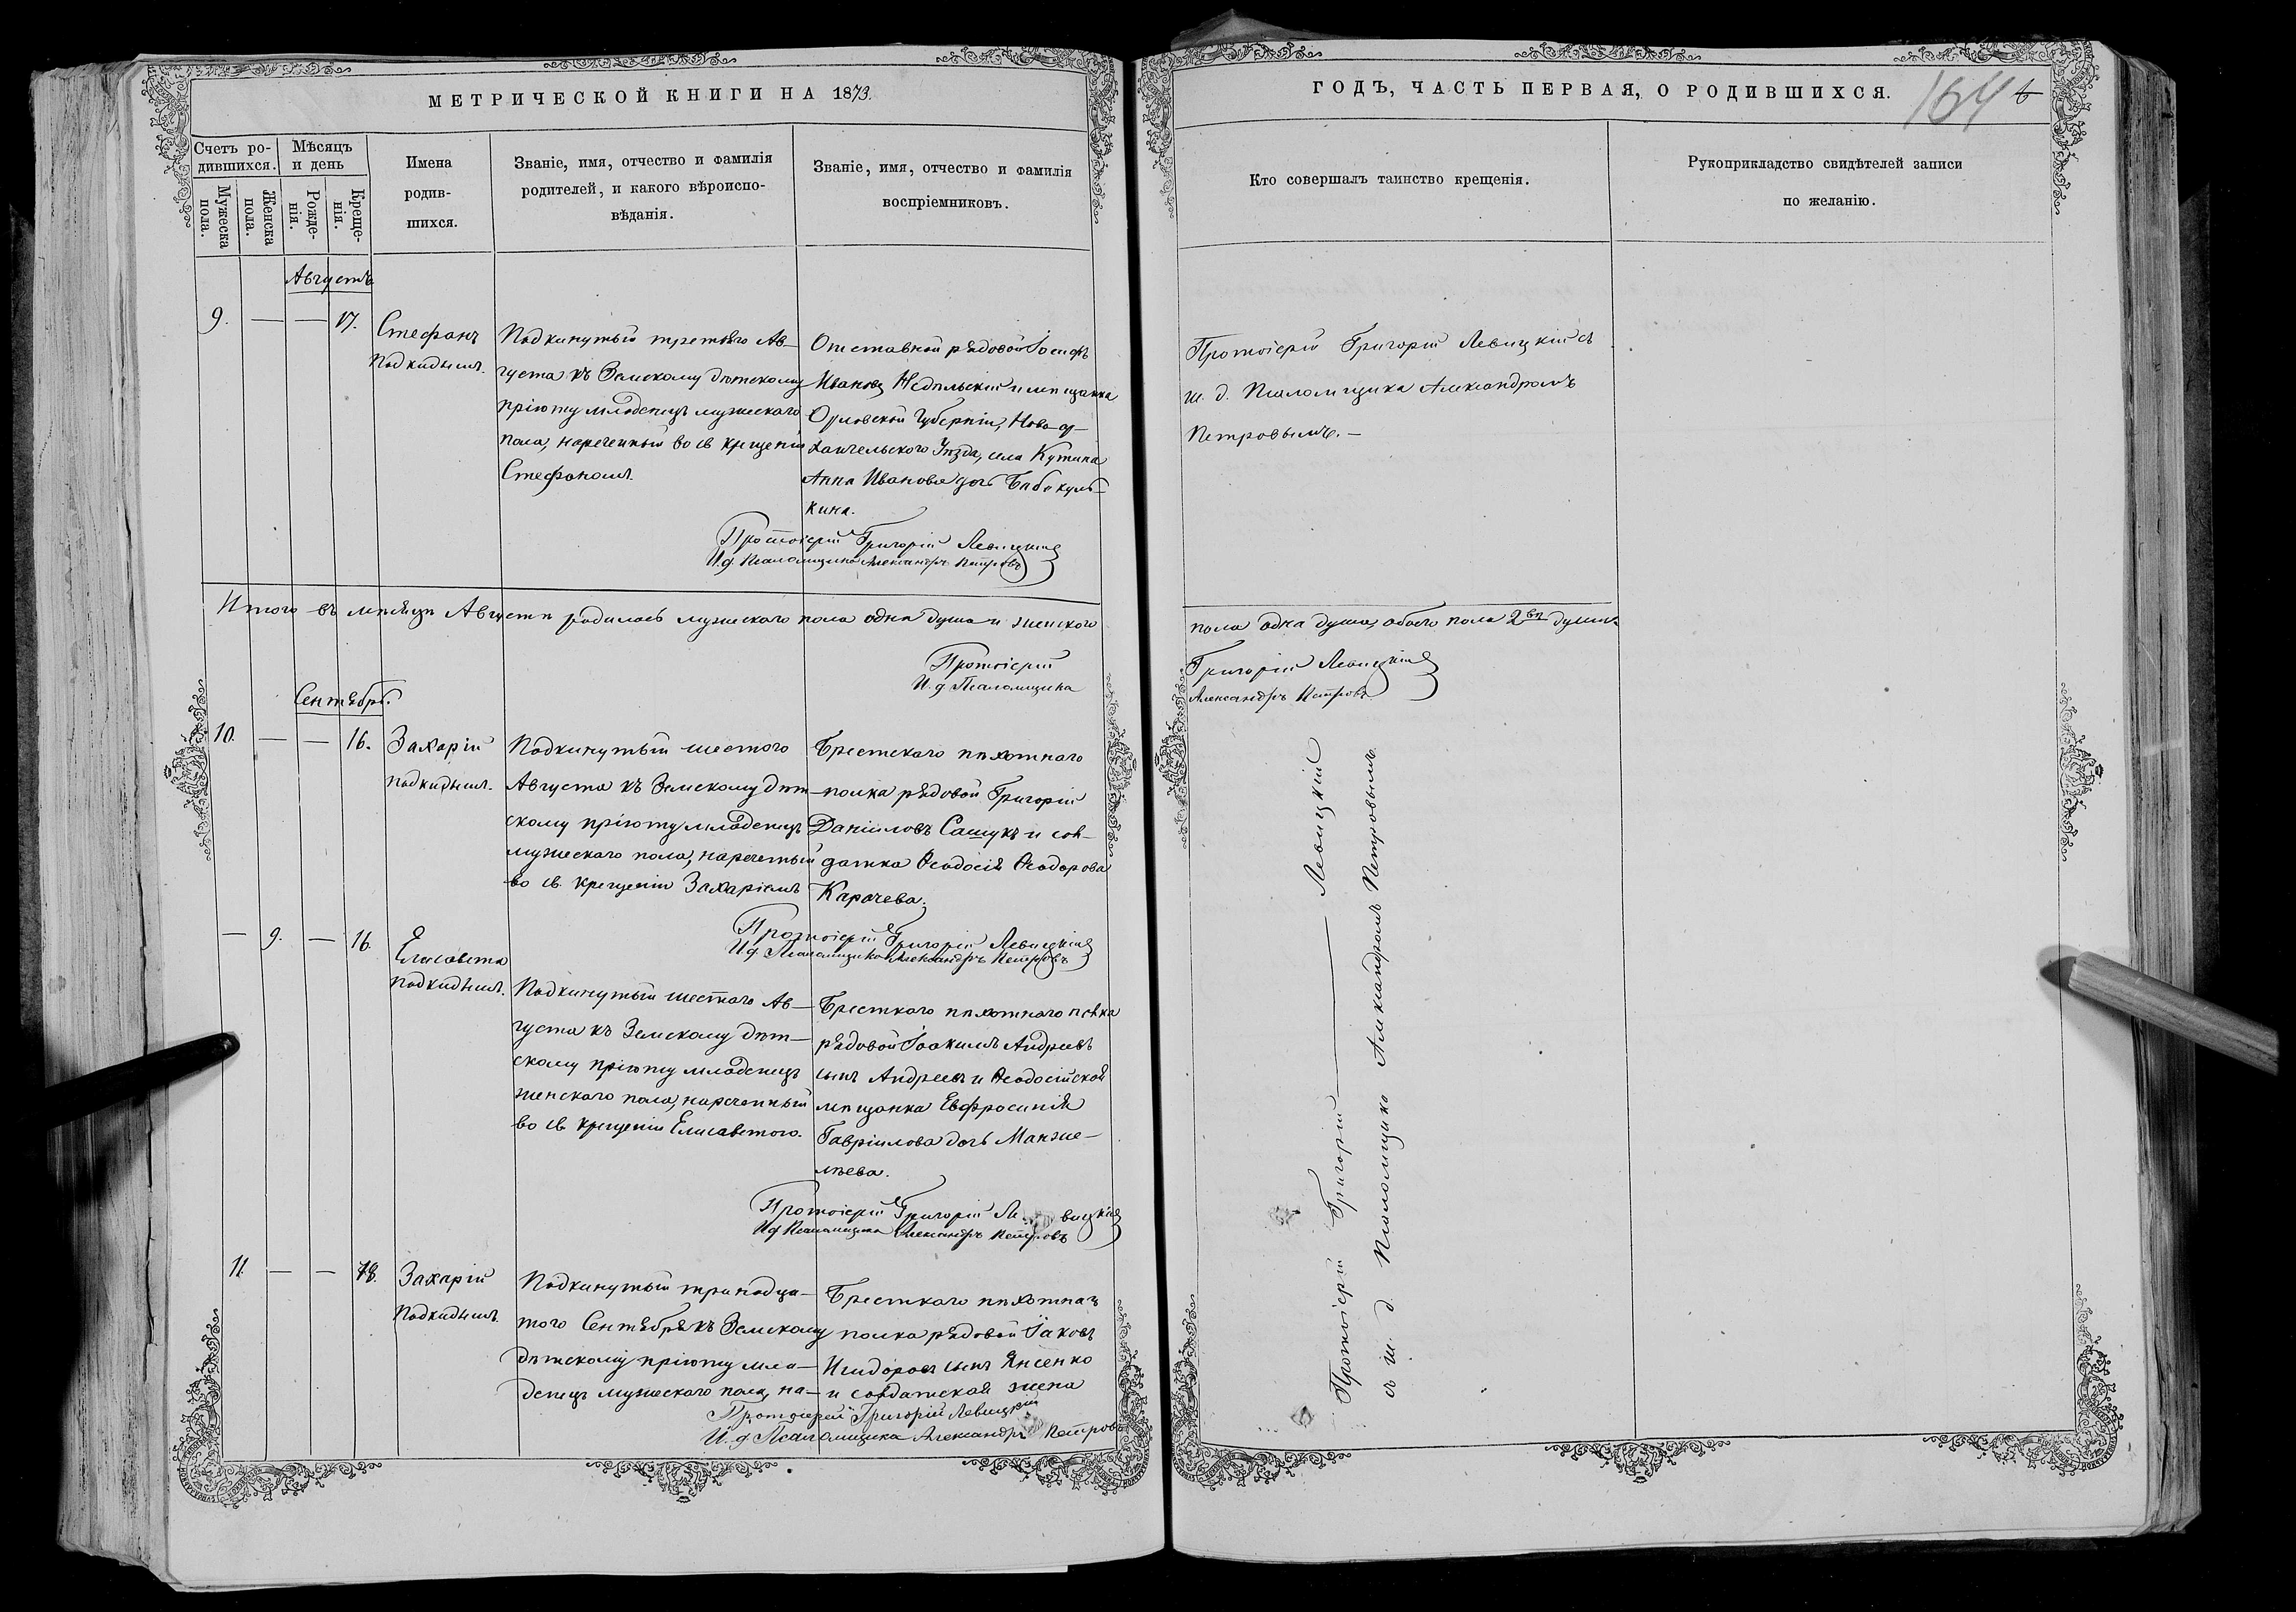 МЕТРИЧЕСКОЙ КНИГИ НА 1873.
Счетъ ро-
дившихся.
Мужеска
пола.
Женска
пола.
Мѣсяцъ
и день
Рожде-
нія.
Креще-
нія.
Имена
родив-
шихся.
Званіе, имя, отчество и фамилія
родителей, и какого вѣроиспо-
вѣданія.
Званіе, имя, отчество и фамилія
воспріемниковъ.
Августъ
9. — — 17.
Стефанъ
подкидышъ.
Подкинутый третьяго Ав-
густа къ Земскому дѣтскому
пріюту младенецъ мужескаго
пола, нареченный во св крещеніи
Стефаномъ.
Отставной рядовой Іосифъ
Ивановъ Недѣльскій и мѣщанка
Орловской Губерніи, Ново-
Уѣзда, села Кутина
Анна Иванова дочь Бабакуль-
кина.
Протоіерей Григорій Левицкій
И.д. Псаломщика Александръ Петровъ
Итого въ мѣсяцѣ Августѣ родилось мужескаго пола одна душа и женскаго
Протоіерей
И. д Псаломщика
Сентябрь.
10. — — 16.
Захарій
подкидышъ.
Подкинутый шестого
Августа къ Земскому дѣт-
скому пріюту младенецъ
мужескаго пола, нареченный
во св. крещеніи Захаріемъ
Брестскаго пѣхотнаго
полка рядовой Григорій
Даніиловъ Сашукъ и сол-
датка Ѳеодосія Ѳеодорова
Карачева.
Протоіерей Григорій Левицкій
И.д. Псаломщика Александръ Петровъ
— 9. — 16.
Елисавета
подкидышъ.
Подкинутый шестаго Ав-
густа къ Земскому дѣт-
скому пріюту младенецъ
женскаго пола, нареченный
во св крещеніи Елисаветою.
Бресткаго пѣхотнаго полка
рядовой Іоакимъ Андреевъ
сынъ Андреевъ и Ѳеодосійской
мѣщанка Евфросинія
Гавріилова дочь Манже-
лѣева.
Протоіерей Григорій Левицкій
И д Псаломщика Александръ Петровъ
11. — — 18.
Захарій
подкидышъ.
Подкинутый тринадца-
того Сентября къ Земскому
дѣтскому пріюту мла-
денецъ мужескаго пола, на-
Бресткаго пѣхотнаг
полка рядовой Іаковъ
Исидоровъ сынъ Янсенко
и солдатская жена
Протоіерей Григорій Левицкій
И. д Псаломщика Александръ Петровъ
ГОДЪ, ЧАСТЬ ПЕРВАЯ, О РОДИВШИХСЯ.
164
Кто совершалъ таинство крещенія.
Рукоприкладство свидѣтелей записи
по желанію.
Протоіерей Григорій Левицкій съ
и. д. Псаломщика Александромъ
Петровымъ. —
пола одна душа, обоего пола 2вѣ души
Григорій Левицкій
Александръ Петровъ
Протоіерей Григорій Левицкій
съ и. д. Псаломщика Александромъ Петровымъ